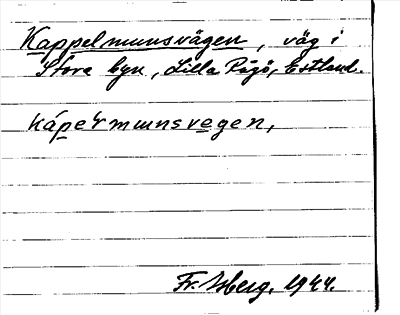 Kappelmunsvägen, väg i
Stora byn, Lilla Rågö, Estland.
kápermunsvegen,
Fr. Isberg. 1944.